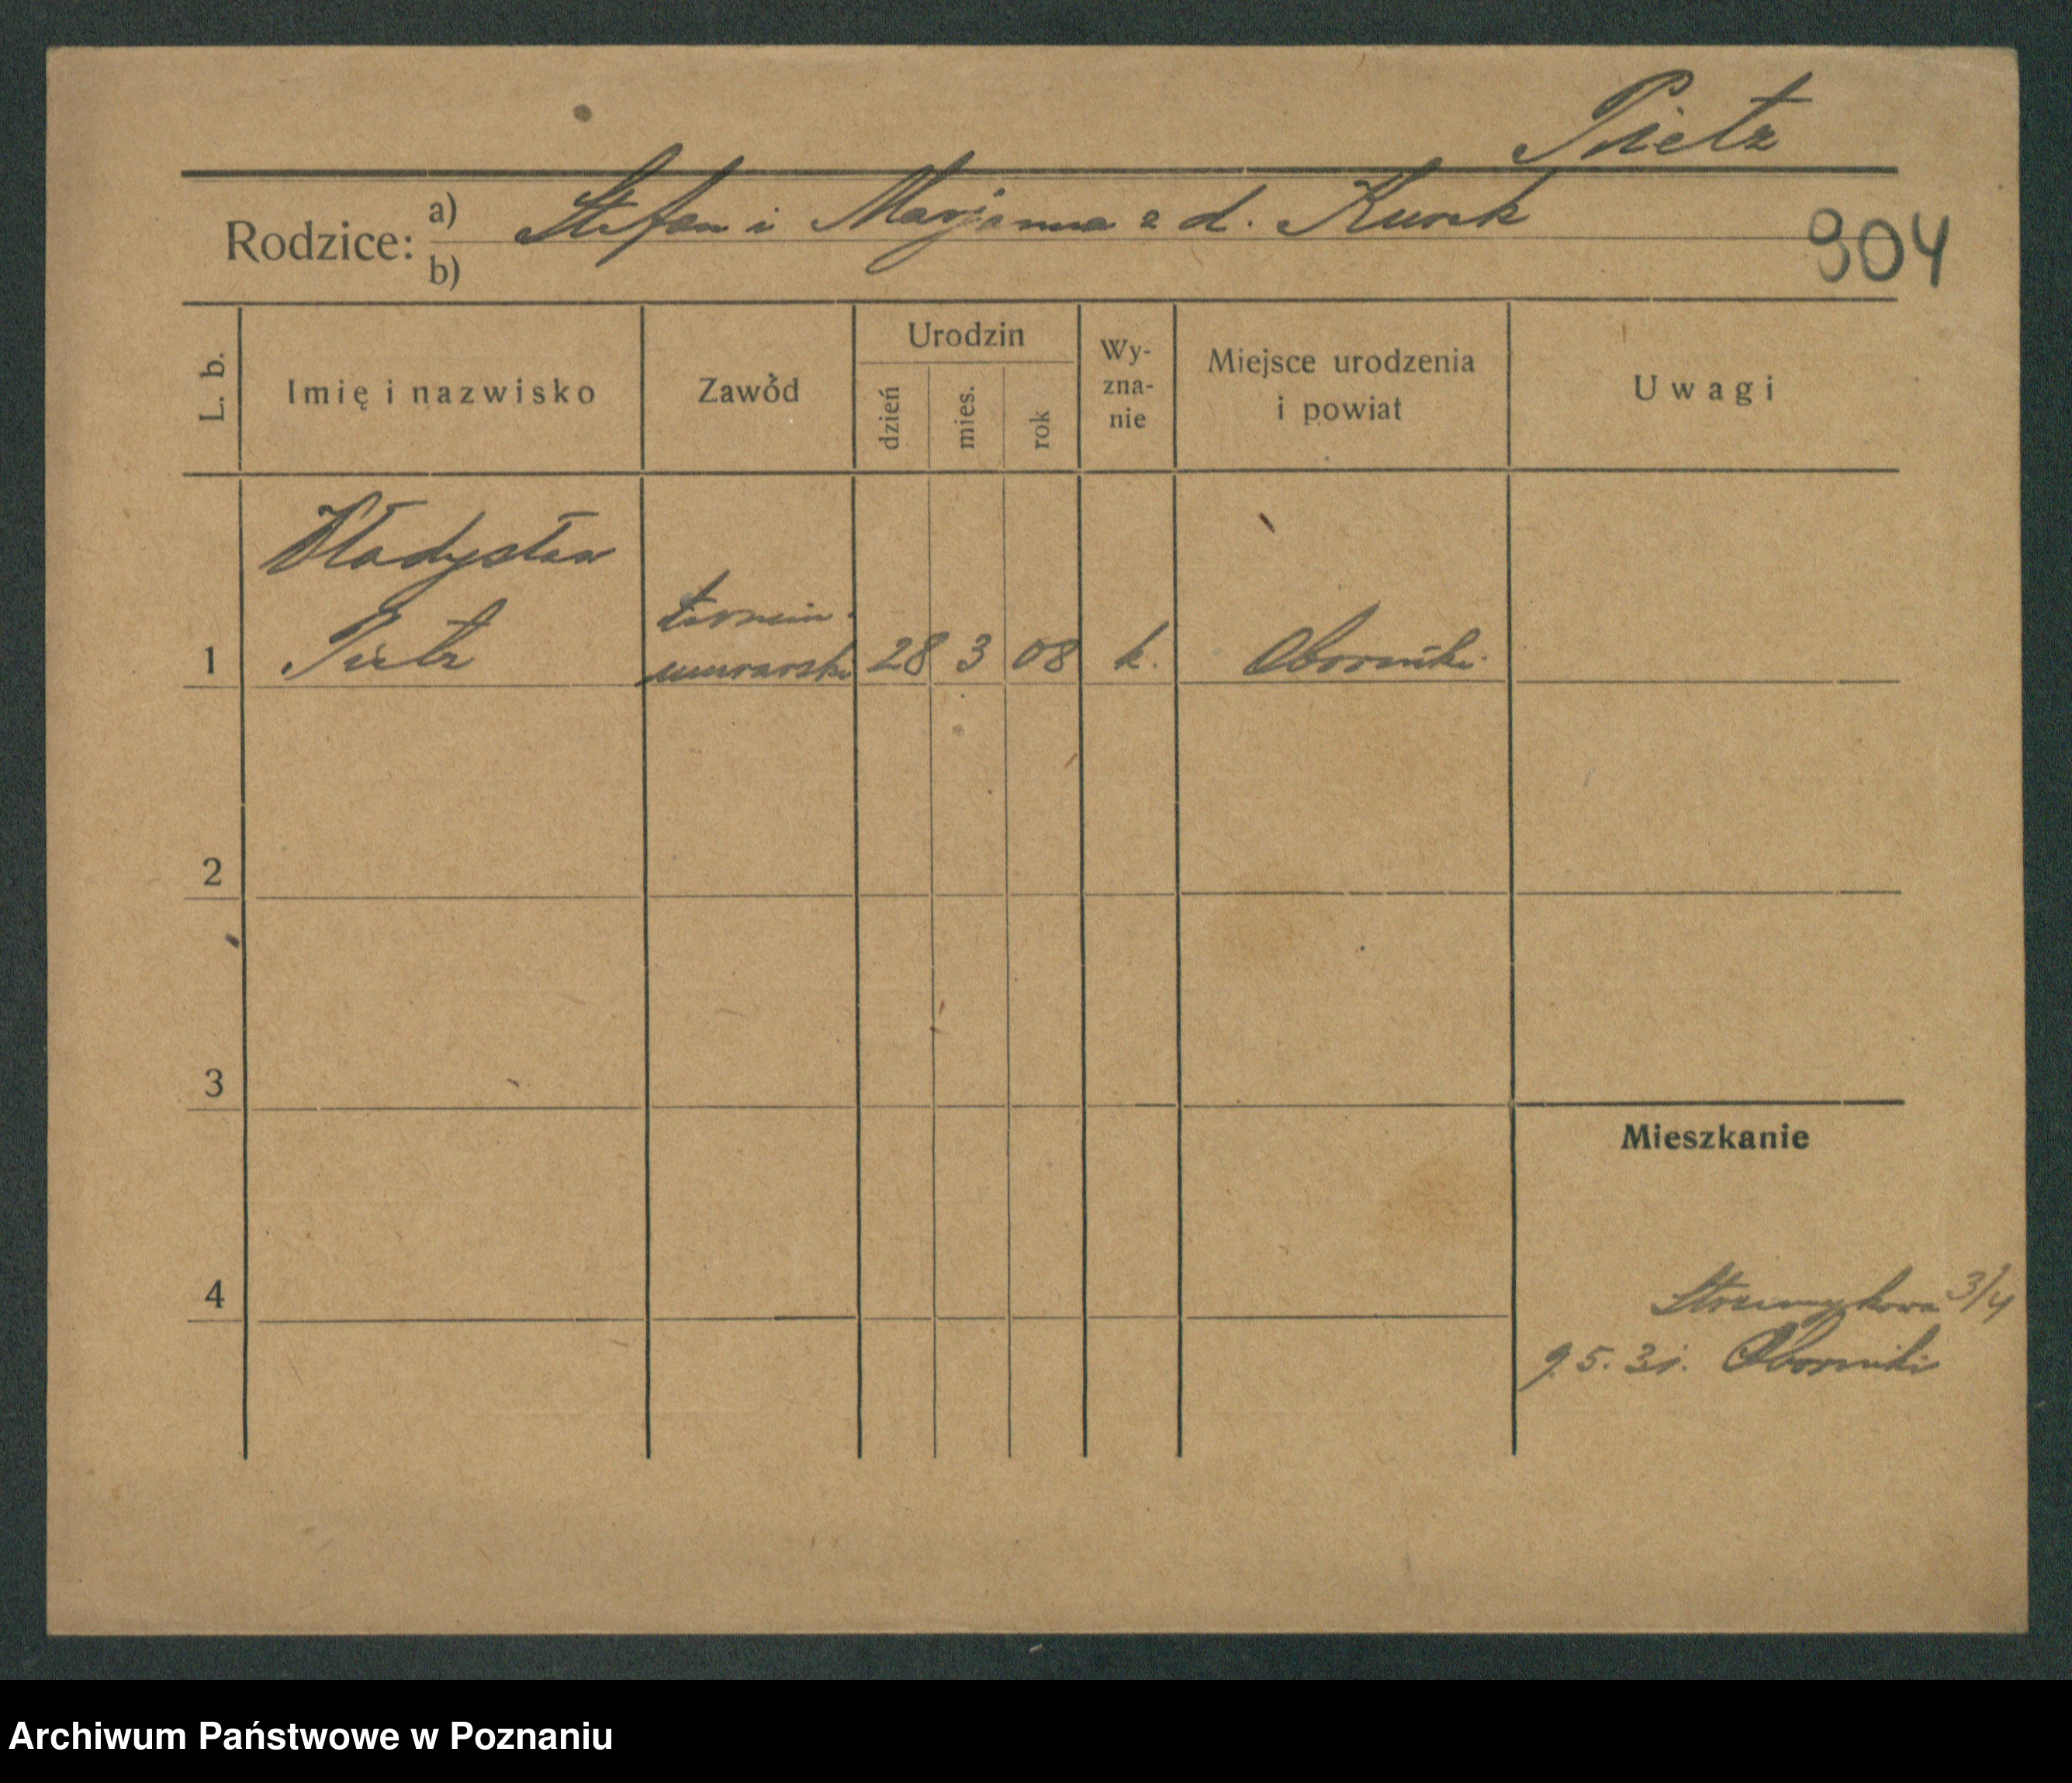 Pietz
Rodzice: a) Stefan i Marjanna z d. Kurek
b)
904
L. b.
Imię i nazwisko
Zawód
Urodzin
dzień
mies.
rok
Wy-
zna-
nie
Miejsce urodzenia
i powiat
Uwagi
Władysław
Pietz
1
termin.
murarski
28
3
08
k.
Oborniki
2
3
Mieszkanie
4
Strumykowa 3/4
9.5.31. Oborniki
Archiwum Państwowe w Poznaniu